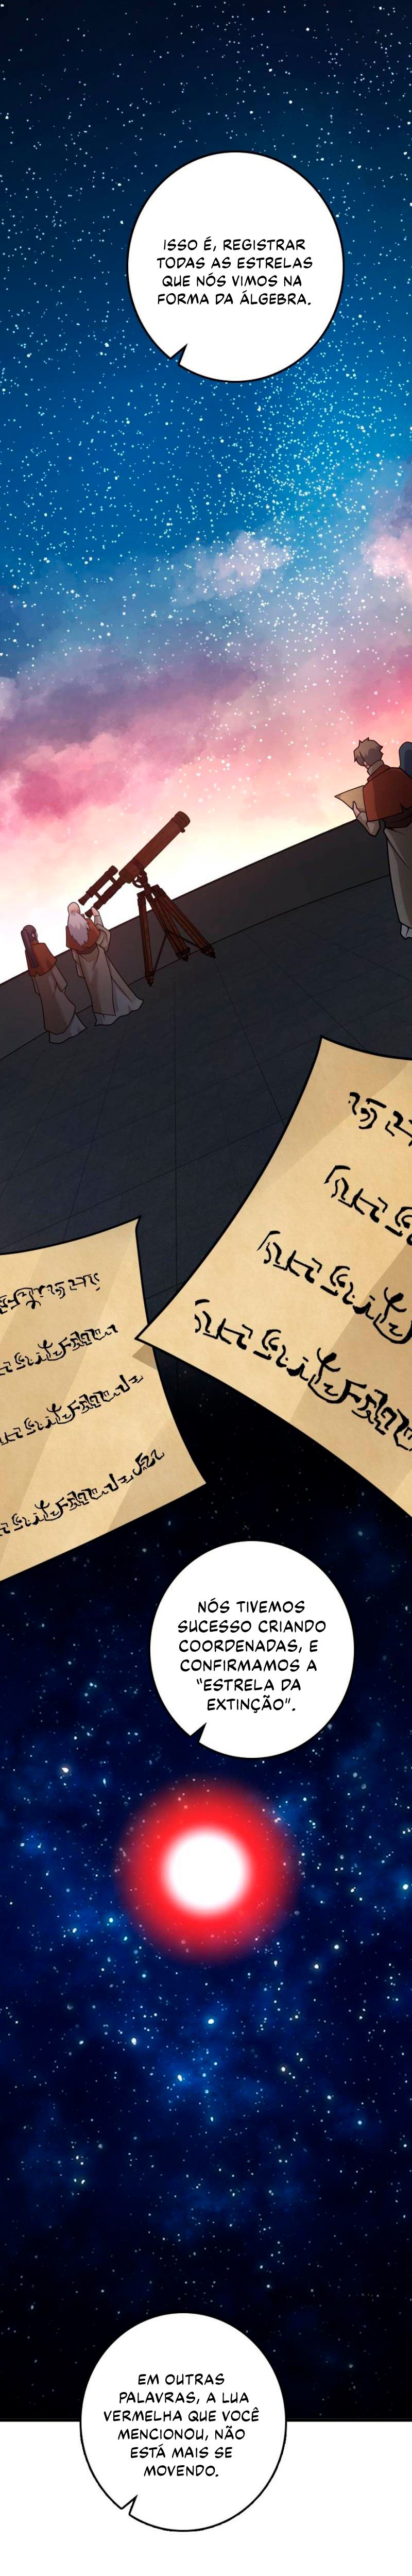 ISSO É, REGISTRAR
TODAS AS ESTRELAS
QUE NÓS VIMOS NA
FORMA DA ÁLGEBRA.
NÓS TIVEMOS
SUCESSO CRIANDO
COORDENADAS, E
CONFIRMAMOS A
"ESTRELA DA
EXTINÇÃO".
EM OUTRAS
PALAVRAS, A LUA
VERMELHA QUE VOCÊ
MENCIONOU, NÃO
ESTÁ MAIS SE
MOVENDO.